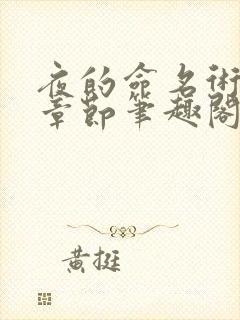 夜的命名術
章節筆趣閣
黃挺